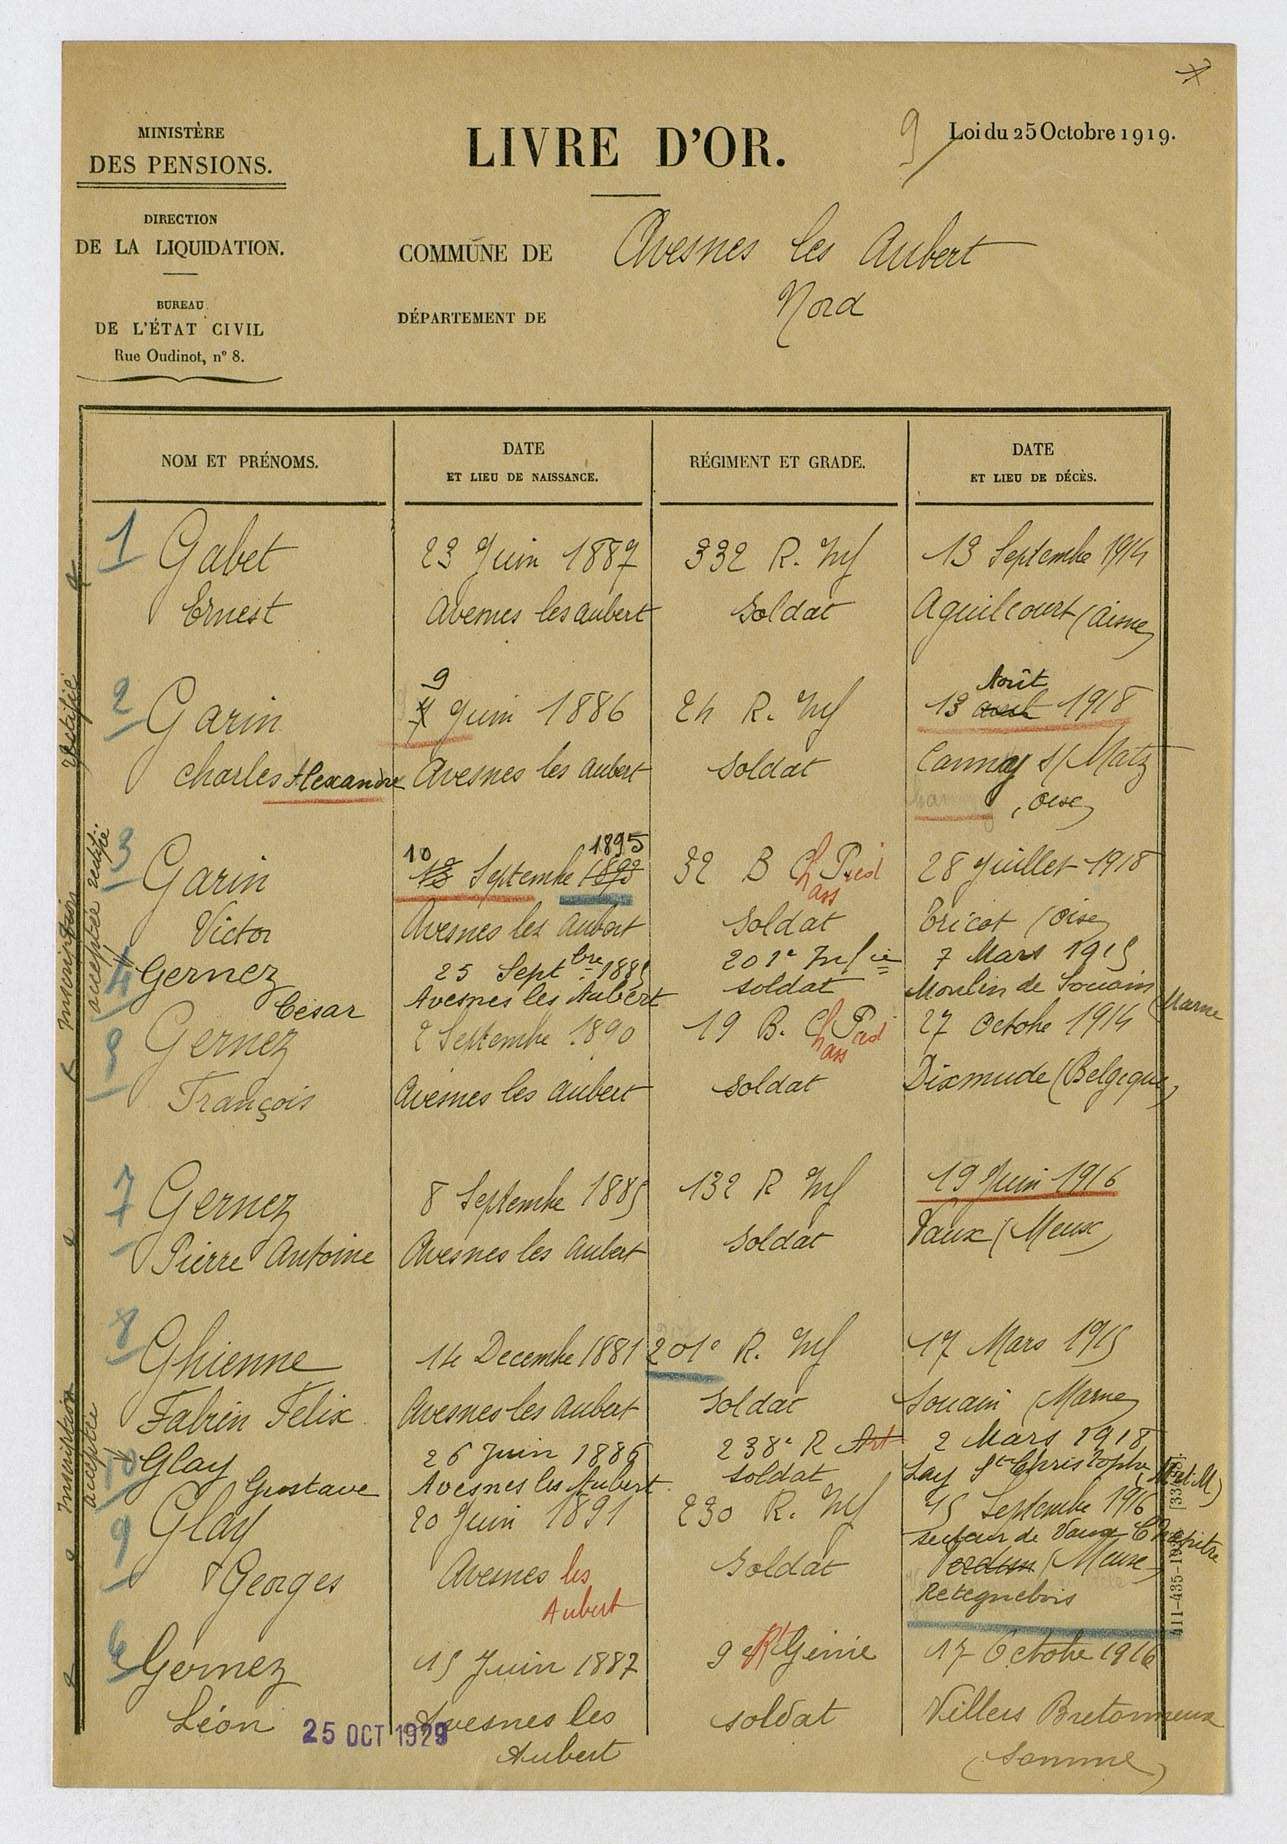 MINISTÈRE
DES PENSIONS.
DIRECTION
DE LA LIQUIDATION.
BUREAU
DE L'ÉTAT CIVIL
Rue Oudinot, n° 8.
LIVRE D'OR.
9
Loi du 25 Octobre 1919.
COMMUNE DE Avesnes les Aubert
DÉPARTEMENT DE Nord
NOM ET PRÉNOMS.
DATE
ET LIEU DE NAISSANCE.
RÉGIMENT ET GRADE.
DATE
ET LIEU DE DÉCÈS.
1 Gabet 23 Juin 1887 332 R. Inf 13 Septembre 1914
Ernest Avesnes les aubert Soldat Aguilcourt (Aisne)
9 Août
2 Garin Juin 1886 24 R. Inf 13 août 1918
Charles Alexandre Avesnes les aubert Soldat Cannay s/ Matz
(Oise)
10 1895
3 Garin 18 Septembre 1893 32 B Ch Pied 28 Juillet 1918
ass
Victor Avesnes les aubert Soldat Tricot (Oise)
4 Gernez 25 Septbre 1885 201e Infie 7 Mars 1915
César Avesnes les Aubert soldat Moulin de Souain (Marne
Gernez 2 Septembre 1890 19 B. Ch Pied 27 Octobre 1914
ass
François Avesnes les aubert Soldat Dixmude (Belgique)
7 Gernez 8 Septembre 1885 132 R Inf 19 Juin 1916
Pierre Antoine Avesnes les aubert Soldat Vaux (Meuse)
8 Ghienne 14 Decembre 1881 201e R. Inf 17 Mars 1915
Fabrin Félix Avesnes les aubert Soldat Souain (Marne)
10 Glay 26 Juin 1886 238e R Art 2 Mars 1918
Gustave Avesnes les Aubert soldat Lay St Christophe (M.et.M)
9 Glay 20 Juin 1891 230 R. Inf 15 Septembre 1916
secteur de Vaux Chapitre
Georges Avesnes les Soldat Verdun (Meuse)
Aubert Retegnebois
6 Gernez 15 Juin 1887 9e Rt Génie 17 Octobre 1916
Léon Avesnes les soldat Villers Bretonneux
Aubert (Somme)
25 OCT 1929
inscription rectifiée
accepter rectifié
inscription
acceptée